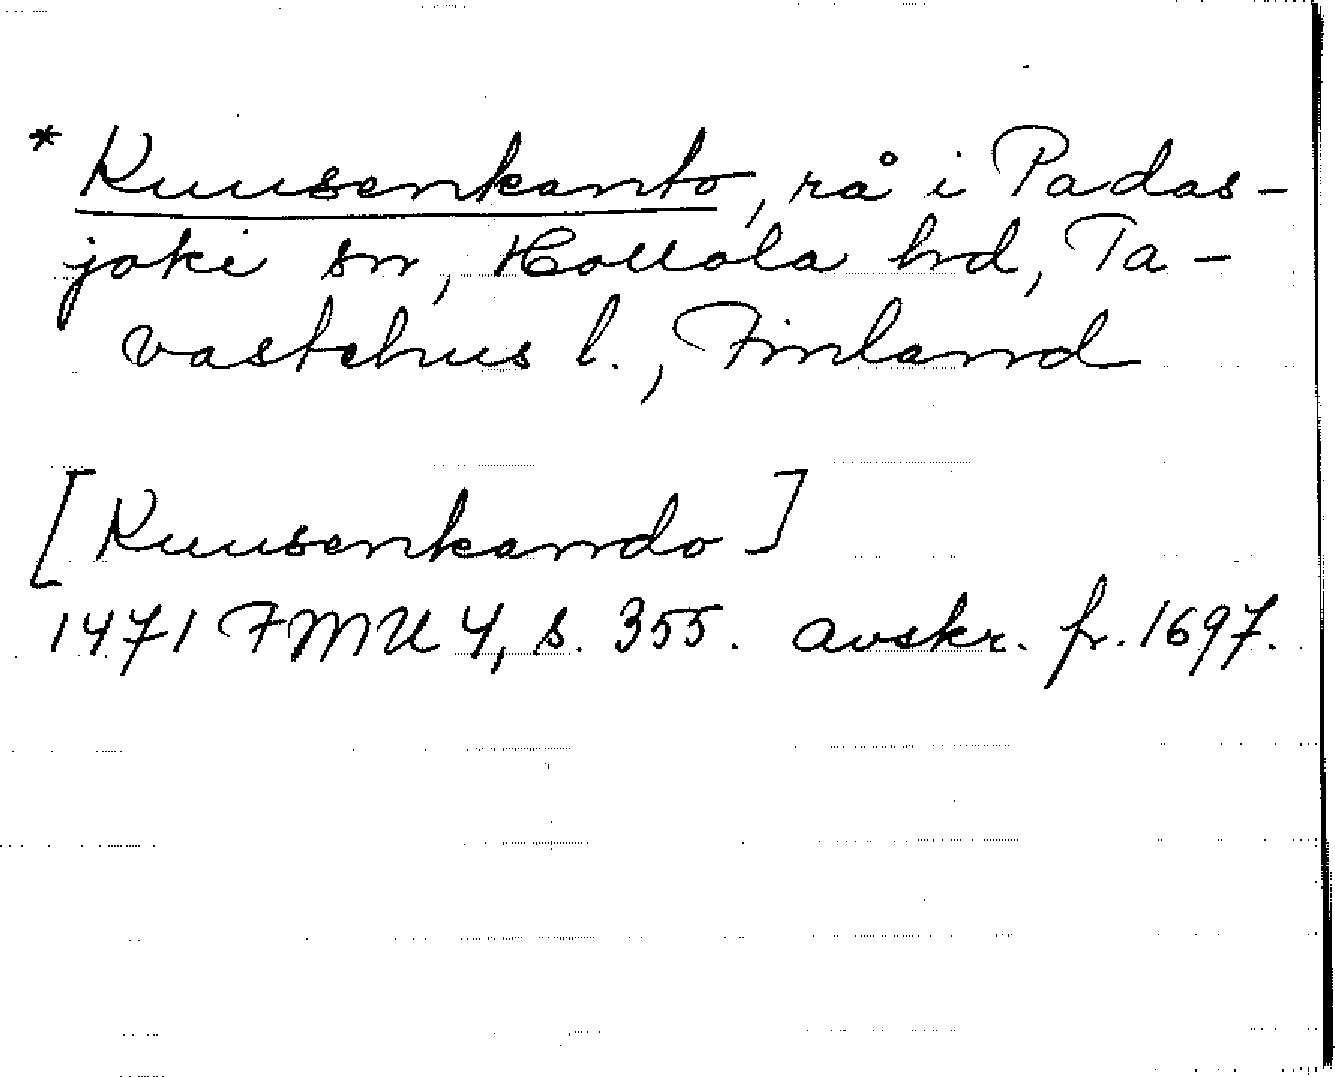 * Kuusenkanto, rå i Padas-
joki sn, Hollola hd, Ta-
vastehus l., Finland
[Kuusenkando]
1471 FMU 4, s. 355. avskr. fr. 1697.